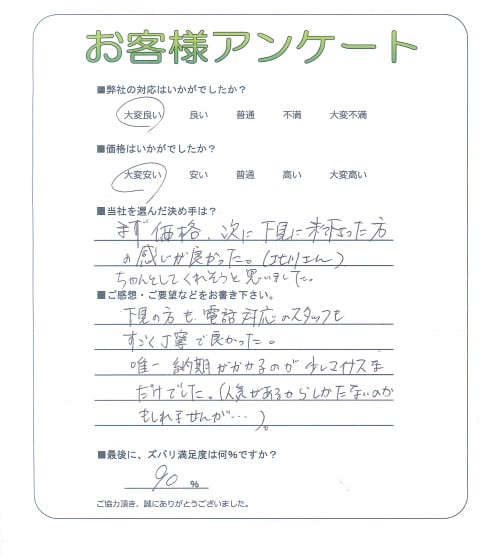 お客様アンケート
■弊社の対応はいかがでしたか？
大変良い 良い 普通 不満 大変不満
■価格はいかがでしたか？
大変安い 安い 普通 高い 大変高い
■当社を選んだ決め手は？
まず価格、次に下見に来て下さった方
の感じが良かった。(北川さん)
ちゃんとしてくれそうと思いました。
■ご感想・ご要望などをお書き下さい。
下見の方も電話対応のスタッフも
すごく丁寧で良かった。
唯一納期がかかるのが少しマイナスな
だけでした。(人気があるからしかたないのか
もしれませんが…)。
■最後に、ズバリ満足度は何％ですか？
90 ％
ご協力頂き、誠にありがとうございました。